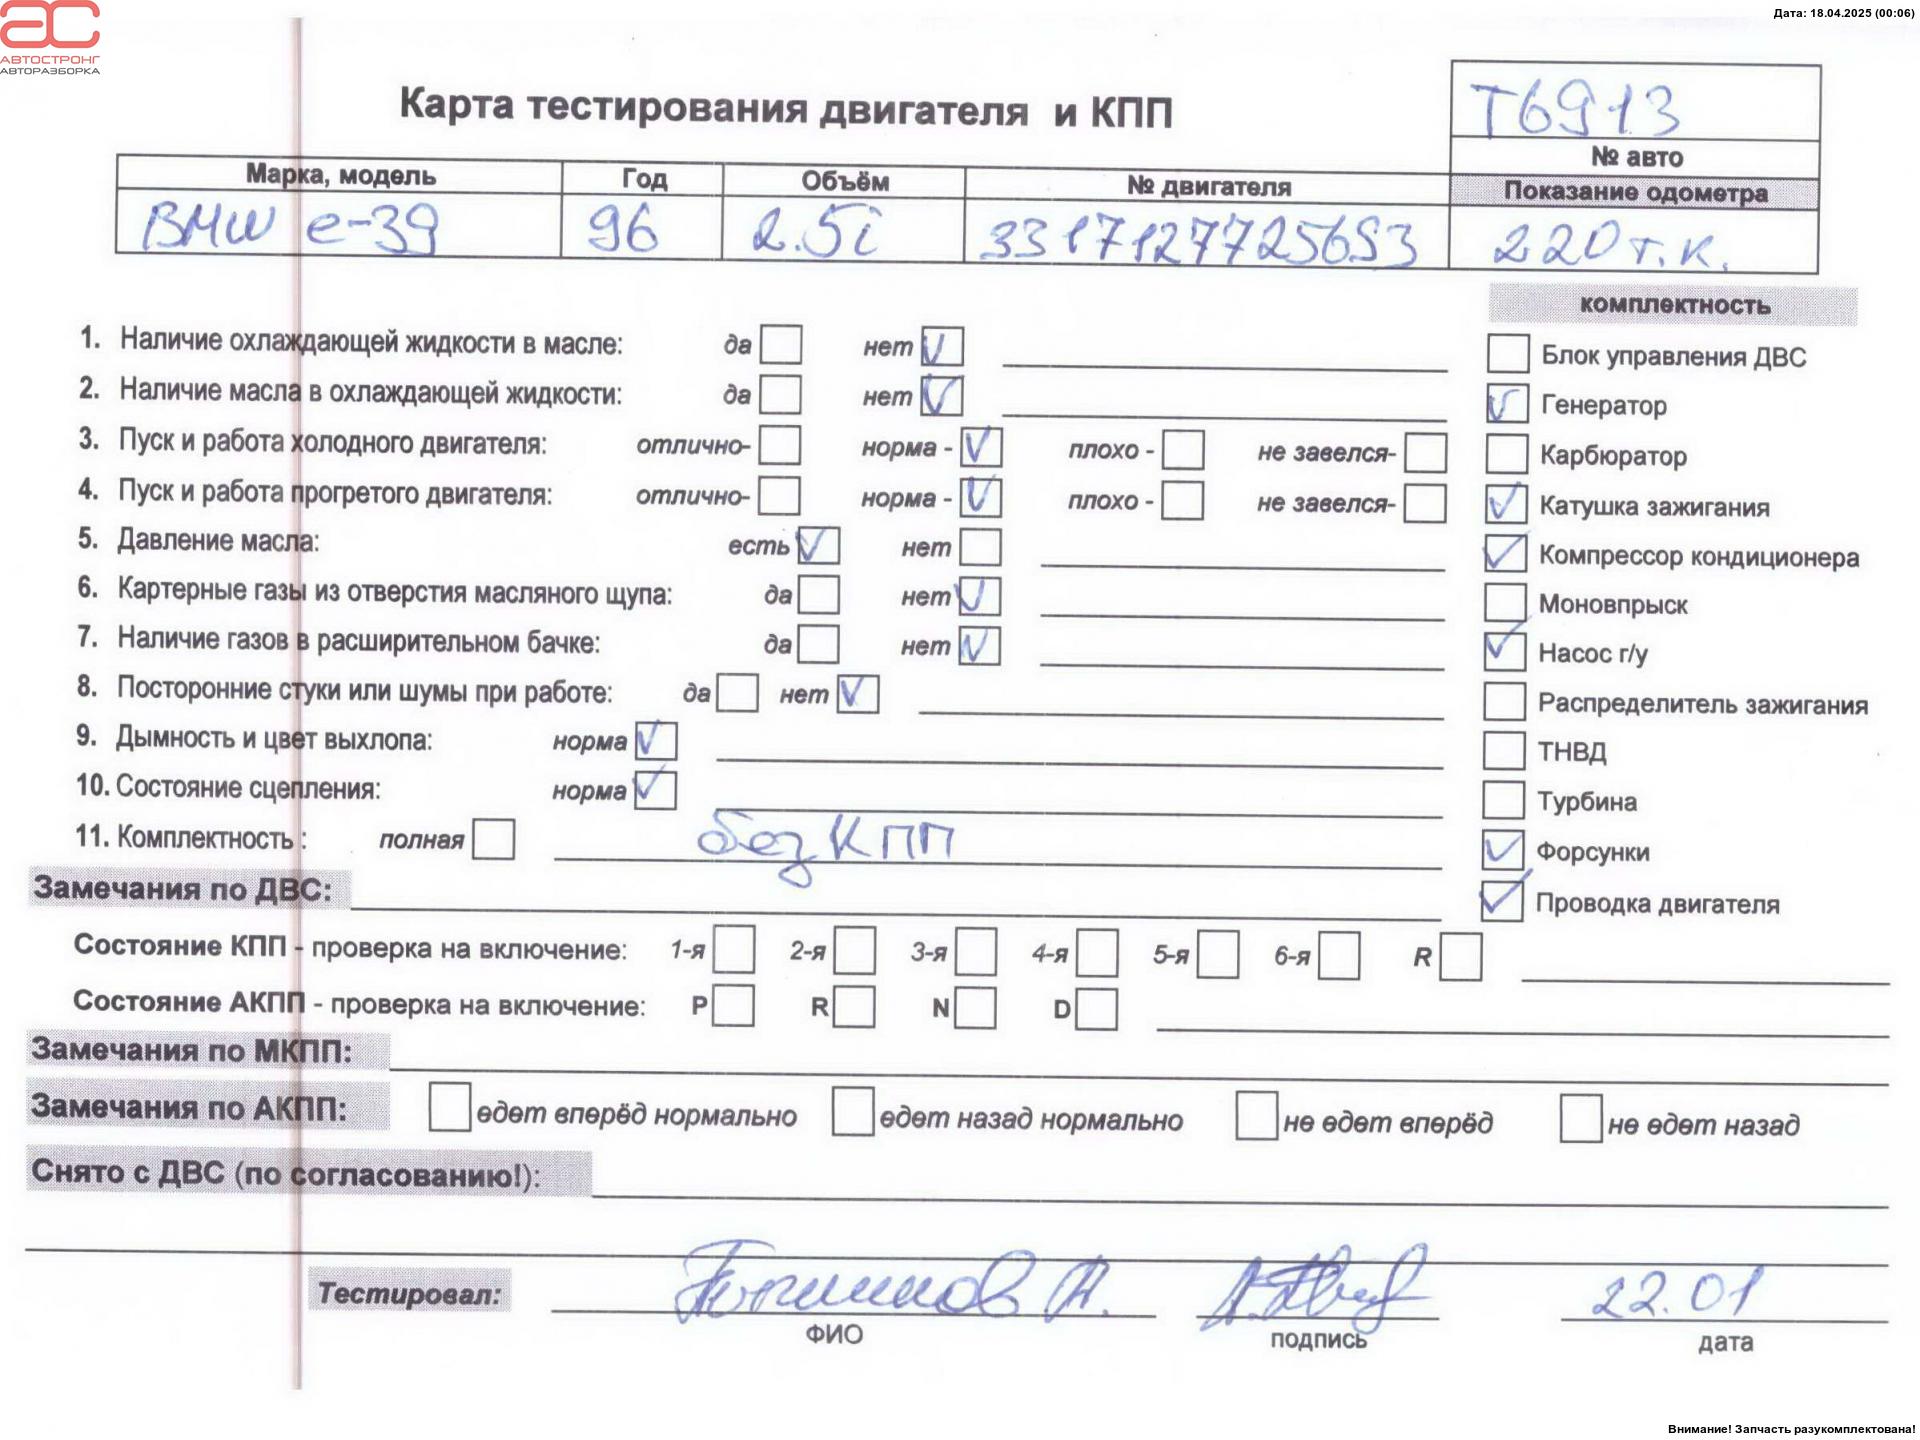 АС
АВТОСТРОНГ
АВТОРАЗБОРКА
Дата: 18.04.2025 (00:06)
Карта тестирования двигателя и КПП
Т6913
№ авто
Марка, модель Год Объём № двигателя Показание одометра
BMW e-39 96 2.5i 3317127725653 220 т.к.
комплектность
1. Наличие охлаждающей жидкости в масле: да нет V Блок управления ДВС
2. Наличие масла в охлаждающей жидкости: да нет V V Генератор
3. Пуск и работа холодного двигателя: отлично- норма - V плохо - не завелся- Карбюратор
4. Пуск и работа прогретого двигателя: отлично- норма - V плохо - не завелся- V Катушка зажигания
5. Давление масла: есть V нет V Компрессор кондиционера
6. Картерные газы из отверстия масляного щупа: да нет V Моновпрыск
7. Наличие газов в расширительном бачке: да нет V V Насос г/у
8. Посторонние стуки или шумы при работе: да нет V Распределитель зажигания
9. Дымность и цвет выхлопа: норма V ТНВД
10. Состояние сцепления: норма V Турбина
11. Комплектность : полная без КПП V Форсунки
Замечания по ДВС: V Проводка двигателя
Состояние КПП - проверка на включение: 1-я 2-я 3-я 4-я 5-я 6-я R
Состояние АКПП - проверка на включение: P R N D
Замечания по МКПП:
Замечания по АКПП: едет вперёд нормально едет назад нормально не едет вперёд не едет назад
Снято с ДВС (по согласованию!):
Тестировал: А. 22.01
ФИО подпись дата
Внимание! Запчасть разукомплектована!